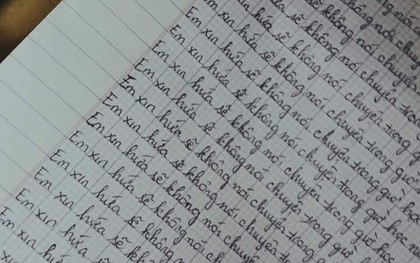 không nói chuyện trong
Em xin hứa sẽ không nói chuyện trong giờ
Em xin hứa sẽ không nói chuyện trong giờ
Em xin hứa sẽ không nói chuyện trong giờ
Em xin hứa sẽ không nói chuyện trong giờ học
Em xin hứa sẽ không nói chuyện trong giờ học
Em xin hứa sẽ không nói chuyện trong giờ học
Em xin hứa sẽ không nói chuyện trong giờ học
Em xin hứa sẽ không nói chuyện trong giờ
Em xin hứa sẽ không nói chuyện
Em xin hứa sẽ không nói
Em xin hứa sẽ không
Em xin hứa